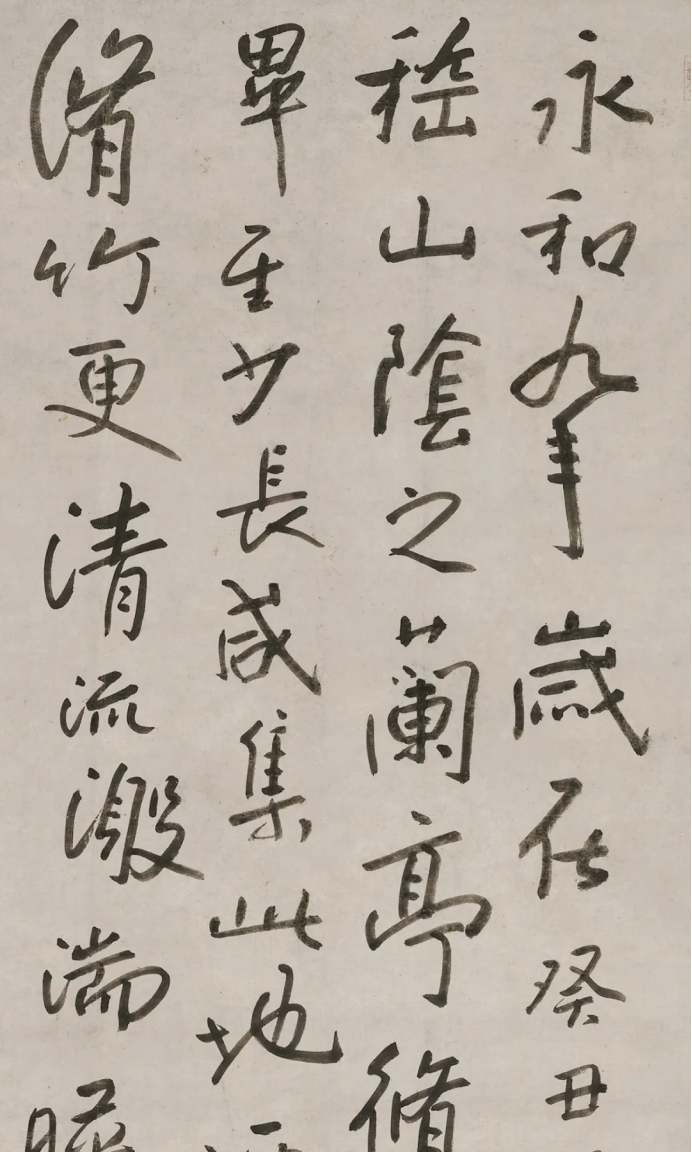 永和九年歲在癸丑
嵇山陰之蘭亭脩
畢至少長咸集此地
脩竹更清流激湍